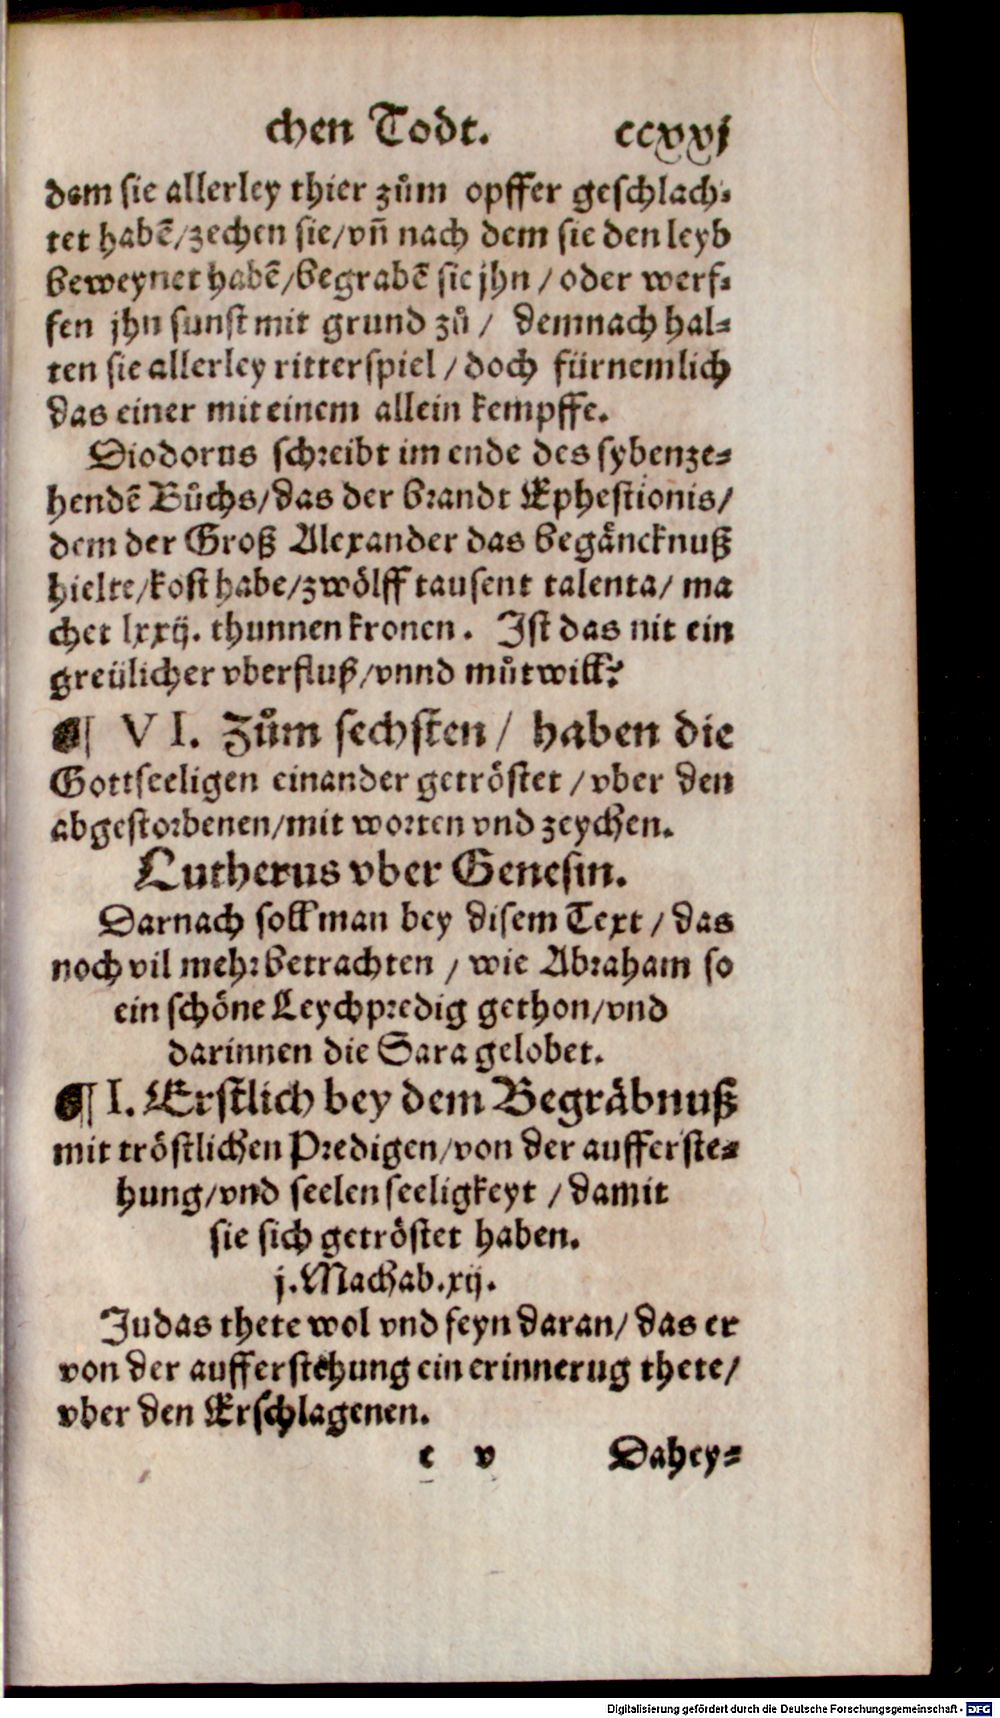 chen Todt. ccxxj
dem sie allerley thier zům opffer geschlach⸗
tet habē/zechen sie/vñ nach dem sie den leyb
beweynet habē/begrabē sie jhn / oder werf⸗
fen jhn sunst mit grund zů / demnach hal⸗
ten sie allerley ritterspiel / doch fürnemlich
das einer mit einem allein kempffe.
Diodorus schreibt im ende des sybenze⸗
hendē Bůchs/das der brandt Ephestionis/
dem der Groß Alexander das begäncknuß
hielte/kost habe/zwölff tausent talenta/ ma
chet lxxij. thunnen kronen. Ist das nit ein
greülicher vberfluß/vnnd můtwill?
¶ VI. Zům sechsten / haben die
Gottseeligen einander getröstet / vber den
abgestorbenen/mit worten vnd zeychen.
Lutherus vber Genesin.
Darnach soll man bey disem Text / das
noch vil mehr betrachten / wie Abraham so
ein schöne Leychpredig gethon/vnd
darinnen die Sara gelobet.
¶ I. Erstlich bey dem Begräbnuß
mit tröstlichen Predigen/von der aufferste⸗
hung/vnd seelen seeligkeyt / damit
sie sich getröstet haben.
j. Machab. xij.
Judas thete wol vnd feyn daran/ das er
von der aufferstehung ein erinnerug thete/
vber den Erschlagenen.
t v Dahey⸗
Digitalisierung gefördert durch die Deutsche Forschungsgemeinschaft - DFG